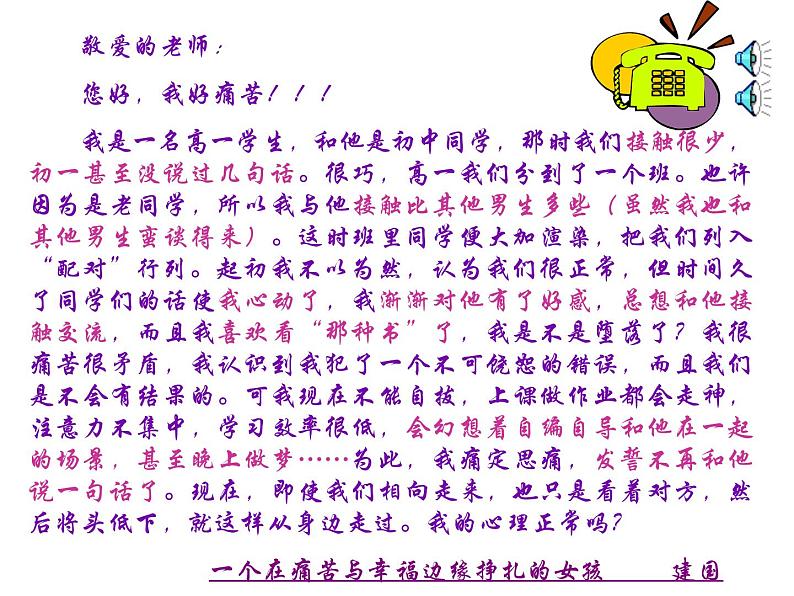 敬爱的老师：
您好，我好痛苦！！！
我是一名高一学生，和他是初中同学，那时我们接触很少，
初一甚至没说过几句话。很巧，高一我们分到了一个班。也许
因为是老同学，所以我与他接触比其他男生多些（虽然我也和
其他男生蛮谈得来）。这时班里同学便大加渲染，把我们列入
“配对”行列。起初我不以为然，认为我们很正常，但时间久
了同学们的话使我心动了，我渐渐对他有了好感，总想和他接
触交流，而且我喜欢看“那种书”了，我是不是堕落了？我很
痛苦很矛盾，我认识到我犯了一个不可饶恕的错误，而且我们
是不会有结果的。可我现在不能自拔，上课做作业都会走神，
注意力不集中，学习效率很低，会幻想着自编自导和他在一起
的场景，甚至晚上做梦……为此，我痛定思痛，发誓不再和他
说一句话了。现在，即使我们相向走来，也只是看着对方，然
后将头低下，就这样从身边走过。我的心理正常吗？
一个在痛苦与幸福边缘挣扎的女孩 建国